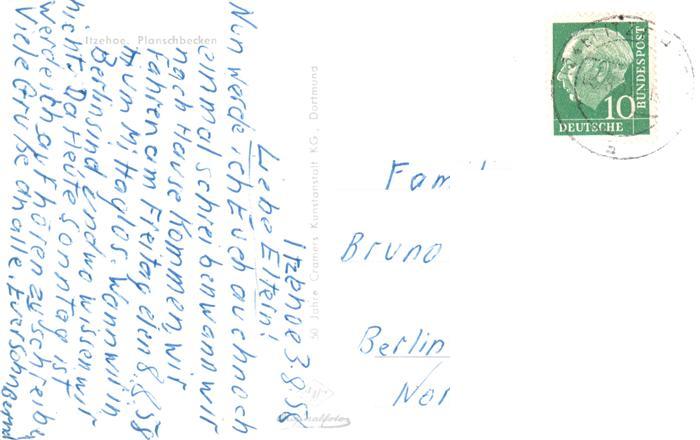 Itzehoe, Planschbecken
Itzehoe 3.8.58
Liebe Eltern!
Nun werde ich Euch auch noch
einmal schreiben wann wir
nach Hause kommen, wir
fahren am Freitag den 8.8.58
um Mittag los. Wann wir in
Berlin sind endwo wissen wir
nicht. Da Heute Sonntag ist
werde ich aufhören zu schreiben
Viele Grüße an alle. Euer Sohn Bernd
50 Jahre Cramers Kunstanstalt KG., Dortmund
10
DEUTSCHE
BUNDESPOST
Fam
Bruno
Berlin
Nor